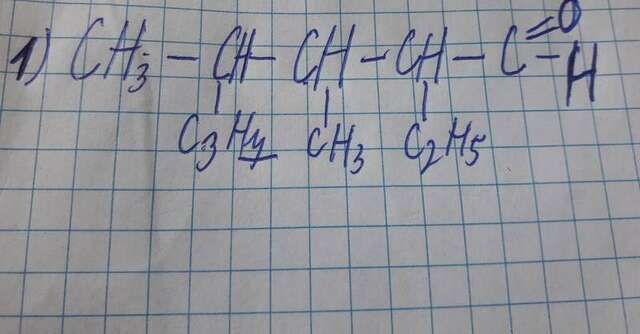 1) CH₃ – CH – CH – CH – C =O – H
C₃H₇ CH₃ C₂H₅